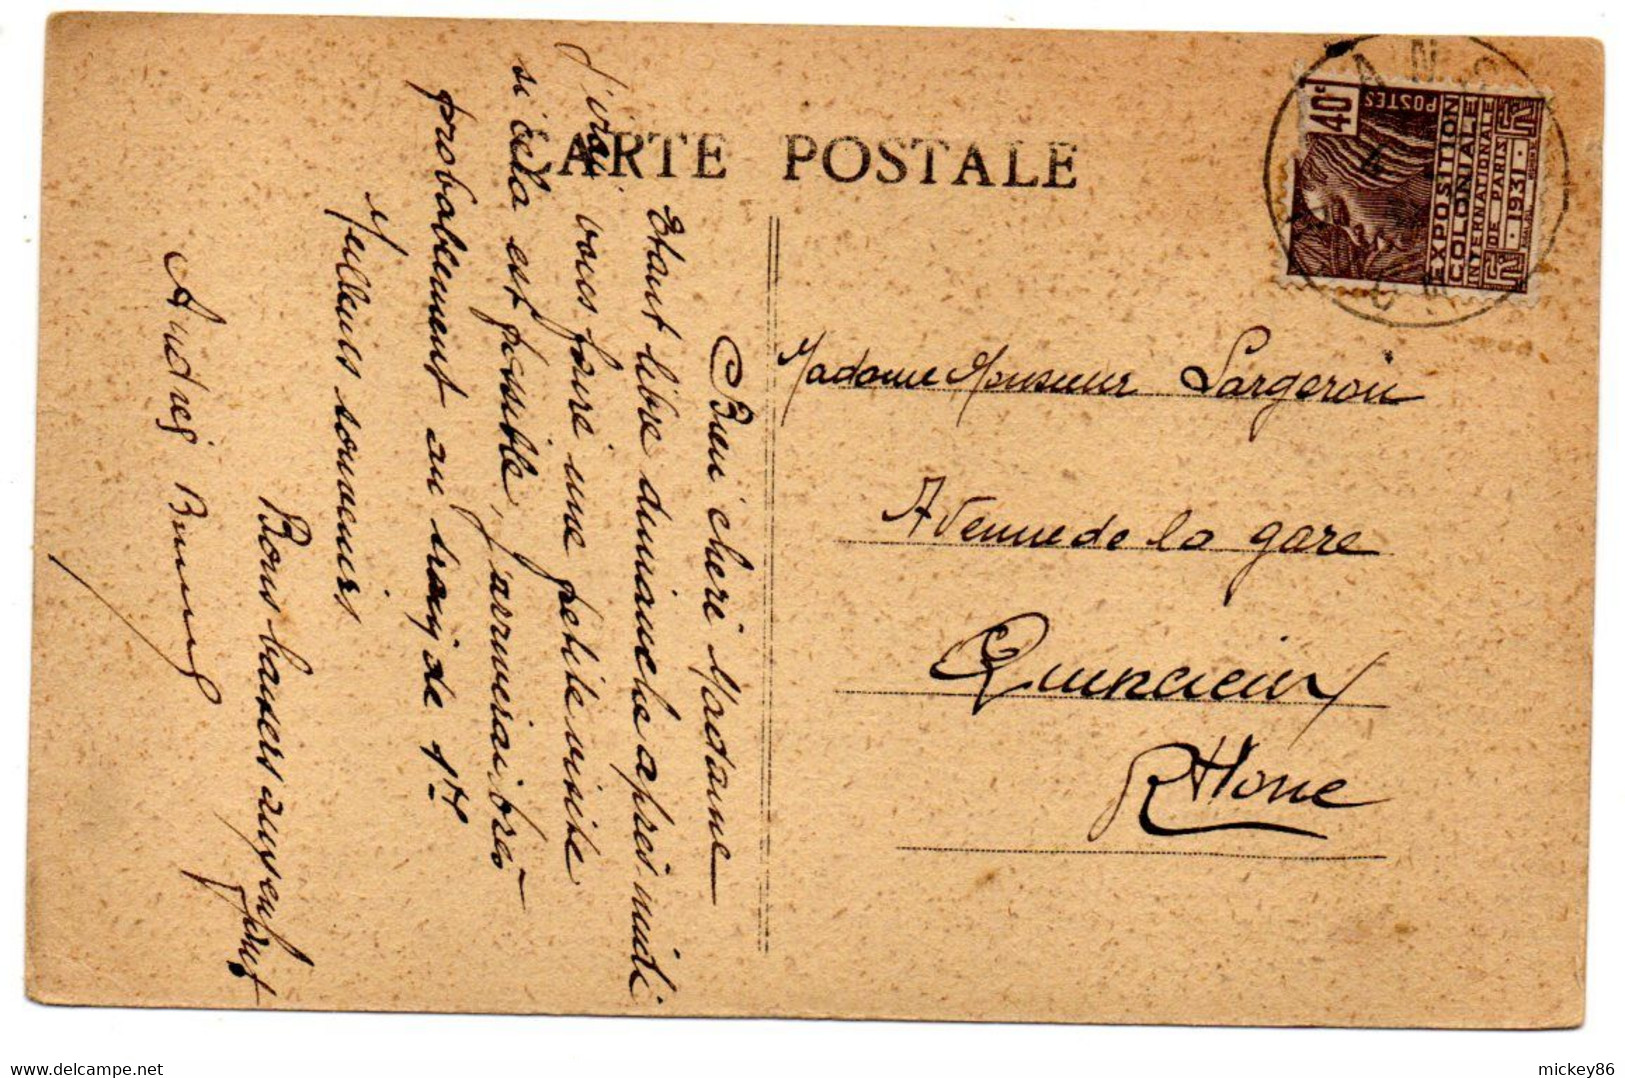 CARTE POSTALE
Bien cheré Madame
Etant libre dimanche après midi
j'irai vous faire une petite visite
si cela est possible, j'arriverai
probablement au train de 1H
Meilleurs souvenirs
Bons baisers aux enfants
Andreé
Madame Monsieur Largeron
Avenue de la gare
Quincieux
RHone
40c
POSTES
EXPOSITION
COLONIALE
INTERNATIONALE
DE PARIS
1931
mickey86